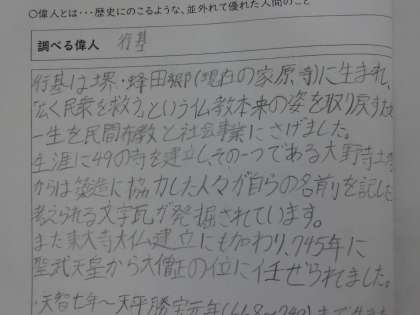 ○偉人とは・・・歴史にのこるような、並外れて優れた人間のこと
調べる偉人 行基
行基は堺・蜂田郷(現在の家原寺)に生まれ、
「広く民衆を救う」という仏教本来の姿を取り戻すた
一生を民間布教と社会事業にささげました。
生涯に49の寺を建立し、その一つである大野寺土
からは築造に協力した人々が自らの名前を記した
考えられる文字瓦が発掘されています。
また東大寺大仏建立にも加わり、745年に
聖武天皇から大僧正の位に任ぜられてました。
・天智七年〜天平勝宝元年(668〜749)まで